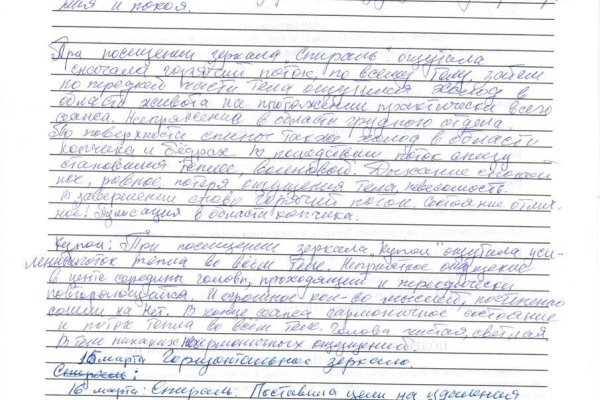 ния и покоя.
При посещении зеркала "Спираль" ощутила
сначала горячий поток, по всему телу, затем
по передней части тела ощущался холод в
области живота на протяжении практически всего
сеанса. Напряжение в области грудного отдела.
По поверхности спины также холод в области
копчика и бедрах. В последствии поток снизу
становился теплее, волновой. Дыхание спокой
ное, ровное, потеря ощущения тела, невесомость.
В завершении снова горячий поток. Состояние отлич-
ное. Пульсация в области копчика.
Купол: При посещении зеркала "Купол" ощутила уси-
ление поток тепла во всем теле. Неприятное ощущение
в центе середины головы, проходящий и переодически
повторяющийся. И огромное кол-во мыслей, постепенно
сошли на нет. В конце сеанса гармоничное состояние
и поток тепла во всем теле. Голова чистая, светлая,
в теле никаких негармоничных ощущений.
15 марта Горизонтальное зеркало.
Спираль:
16 марта: Спираль. Поставила цели на удаления